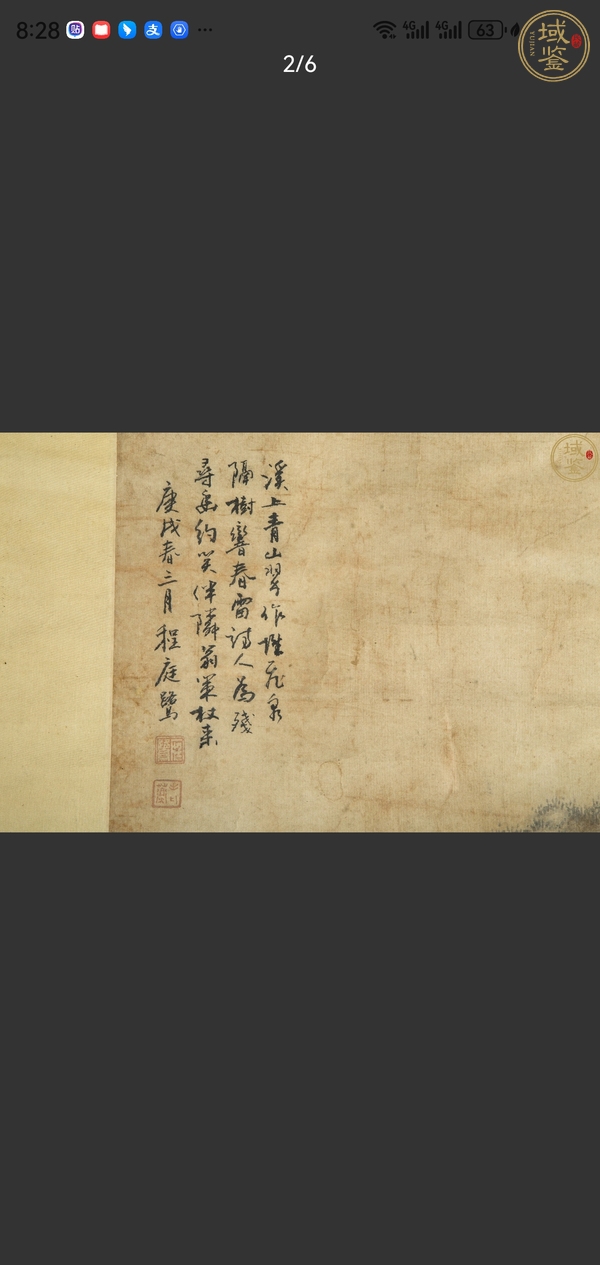 8:28
4G
4G
63
域鉴
YUJIAN
2/6
域鉴
溪上青山翠作堆飛泉
隔樹響春雷詩人為踐
尋幽約笑伴隣翁策杖来
庚戌春三月程庭鷺